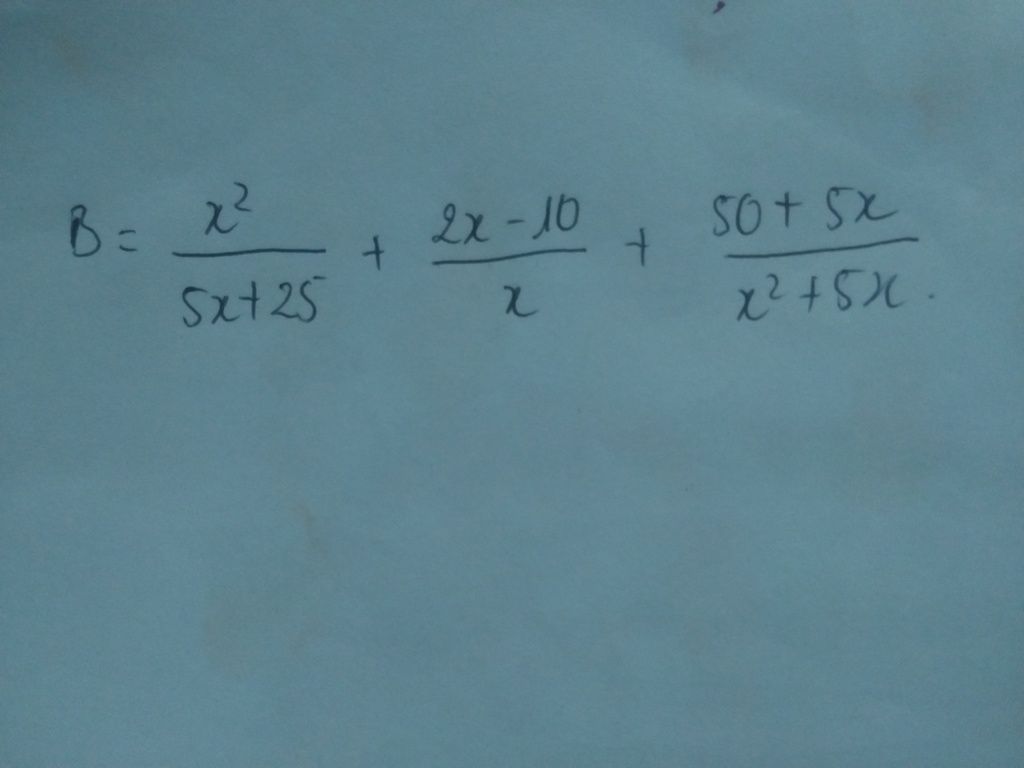 B = x²/(5x+25) + (2x-10)/x + (50+5x)/(x²+5x).